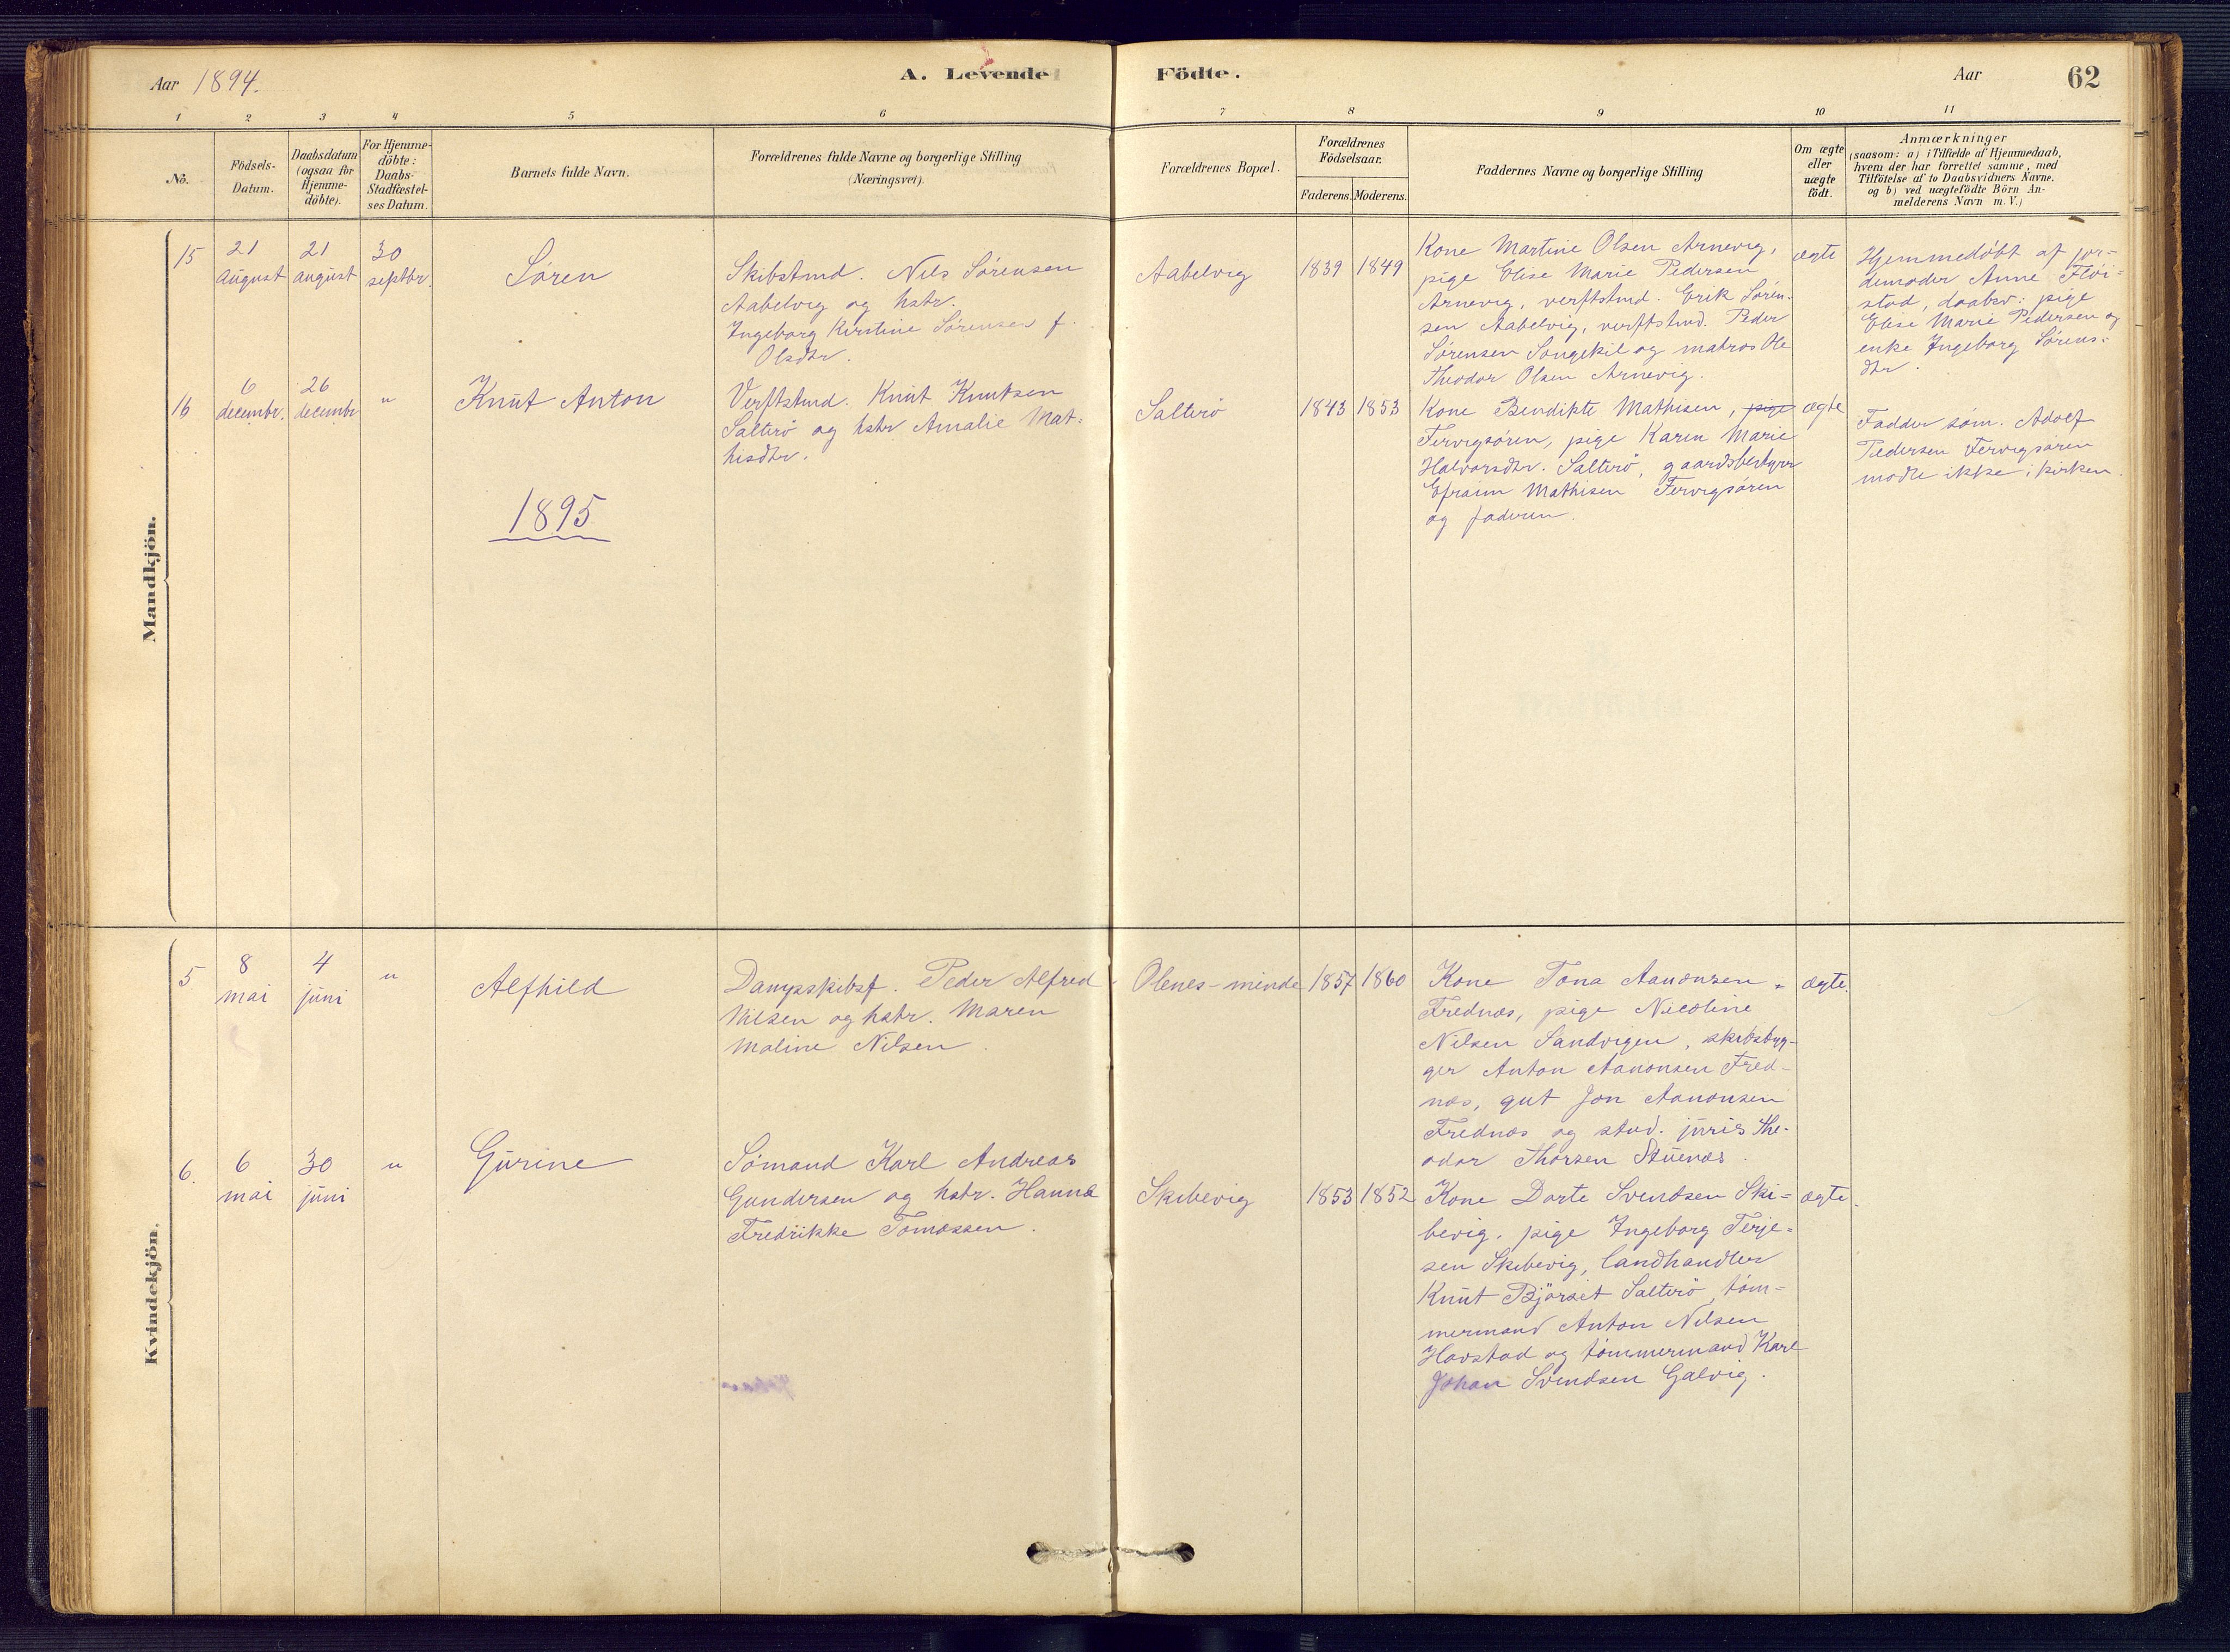 Aar 1894.
A. Levende Födte.
Aar
62
1 2 3 4 5 6 7 8 9 10 11
No.
Födsels-
Datum.
Daabsdatum
(ogsaa for
Hjemme-
döbte).
For Hjemme-
döbte:
Daabs-
Stadfæstel-
ses Datum.
Barnets fulde Navn.
Forældrenes fulde Navne og borgerlige Stilling
(Næringsvei).
Forældrenes Bopæl.
Forældrenes
Födselsaar.
Faderens. Moderens.
Faddernes Navne og borgerlige Stilling
Om ægte
eller
uægte
födt.
Anmærkninger
(saasom: a) i Tilfælde af Hjemmedaab,
hvem der har forrettet samme, med
Tilföielse af to Daabsvidners Navne.
og b) ved uægtefödte Börn An-
melderens Navn m. V.)
Mandkjön.
15
21
august
21
august
30
septbr.
Sören
Skibstmd. Nils Sörensen
Aabelvig og hstr.
Ingeborg Kirstine Sörensen f.
Olsdtr.
Aabelvig
1839 1849
Kone Martine Olsen Arnevig,
pige Elise Marie Pedersen
Arnevig, verftstmd. Erik Sören-
sen Aabelvig, verftstmd. Peder
Sörensen Songekil og matros Ole
Theodor Olsen Arnevig.
ægte
Hjemmedöbt af jor-
demoder Anne Flöi-
stad, daabsv: pige
Elise Marie Pedersen og
enke Ingeborg Sörens-
dtr.
16
6
decembr.
26
decembr
"
Knut Anton
Verftstmd. Knut Knutsen
Salterö og hstr Amalie Mat-
hisdtr.
Salterö
1843 1853
Kone Bendikte Mathisen, pige
Fervigsören, pige Karen Marie
Halvorsdtr. Salterö, gaardsbestyrer
Efraim Mathisen Fervigsören
og faderen.
ægte
Fadder söm. Adolf
Pedersen Fervigsören
mödte ikke i kirken.
1895
Kvindekjön.
5
8
mai
4
juni
"
Alfhild
Dampskibsf. Peder Alfred
Nilsen og hstr. Maren
Maline Nilsen.
Olenes-minde
1857 1860
Kone Tona Aanonsen
Frednæs, pige Nicoline
Nilsen Sandvigen, skibsbyg-
ger Anton Aanonsen Fred-
næs, gut Jon Aanonsen
Frednæs og stud. juris The-
odor Thorsen Stuenæs.
ægte.
6.
6
mai
30
juni
"
Gurine
Sömand Karl Andreas
Gundersen og hstr. Hanna
Fredrikke Tomassen.
Skibevig
1853 1852
Kone Dorte Svendsen Ski-
bevig, pige Ingeborg Terje-
sen Skibevig, landhandler
Knut Björset Salterö, töm-
mermand Anton Nilsen
Havstad og tömmermand Karl
Johan Svendsen Galvig.
ægte.